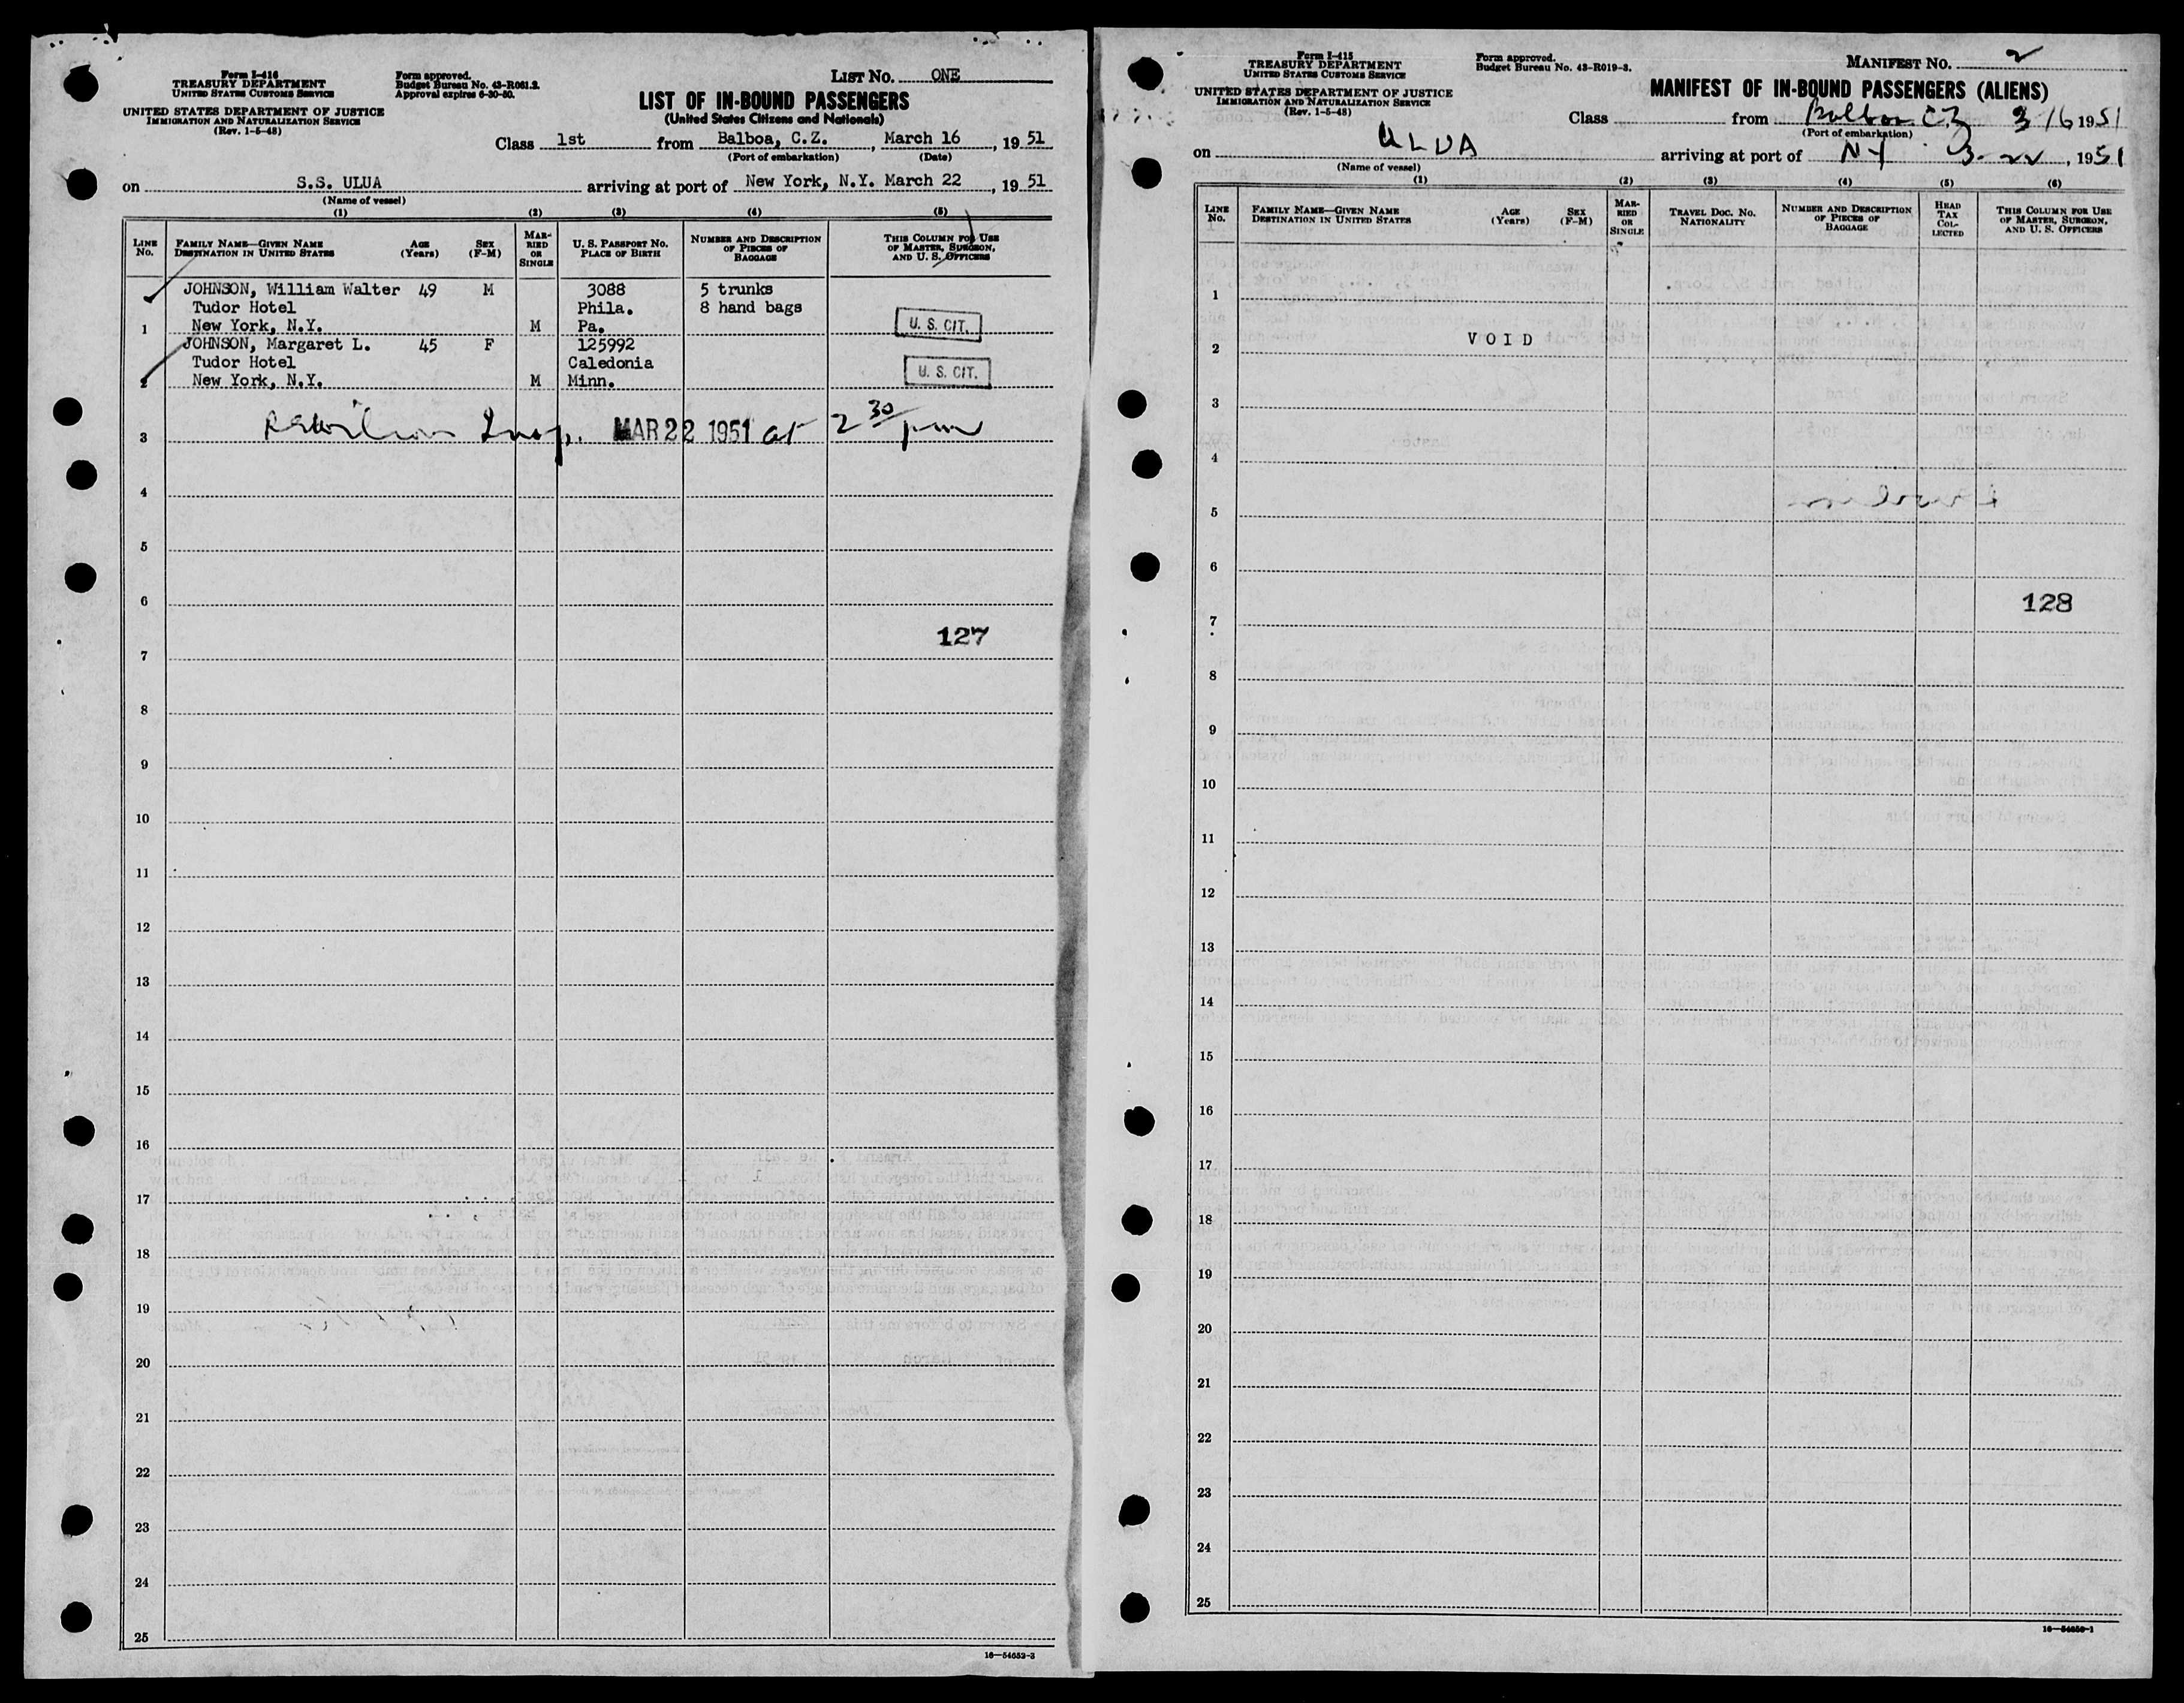 Form I-416
TREASURY DEPARTMENT
UNITED STATES CUSTOMS SERVICE
UNITED STATES DEPARTMENT OF JUSTICE
IMMIGRATION AND NATURALIZATION SERVICE
(Rev. 1-5-48)
Form approved.
Budget Bureau No. 43-R061.2.
Approval expires 6-30-50.
LIST No. ONE
LIST OF IN-BOUND PASSENGERS
(United States Citizens and Nationals)
Class 1st from Balboa, C.Z., March 16, 1951
(Port of embarkation) (Date)
on S.S. ULUA arriving at port of New York, N.Y. March 22, 1951
(Name of vessel)
(1) (2) (3) (4) (5)
LINE No.
FAMILY NAME—GIVEN NAME
DESTINATION IN UNITED STATES
AGE (Years)
SEX (F-M)
MARRIED OR SINGLE
U. S. PASSPORT No.
PLACE OF BIRTH
NUMBER AND DESCRIPTION OF PIECES OF BAGGAGE
THIS COLUMN FOR USE OF MASTER, SURGEON, AND U. S. OFFICERS
JOHNSON, William Walter 49 M 3088 5 trunks
Tudor Hotel Phila. 8 hand bags
1 New York, N.Y. M Pa. U. S. CIT.
JOHNSON, Margaret L. 45 F 125992
Tudor Hotel Caledonia
2 New York, N.Y. M Minn. U. S. CIT.
3 Insp. MAR 22 1951 at 2 30 pm
4
5
6
127
7
8
9
10
11
12
13
14
15
16
17
18
19
20
21
22
23
24
25
16—54652-3
Form I-415
TREASURY DEPARTMENT
UNITED STATES CUSTOMS SERVICE
UNITED STATES DEPARTMENT OF JUSTICE
IMMIGRATION AND NATURALIZATION SERVICE
(Rev. 1-5-48)
Form approved.
Budget Bureau No. 43-R019-3.
MANIFEST No. 2
MANIFEST OF IN-BOUND PASSENGERS (ALIENS)
Class from Balboa CZ 3/16 1951
(Port of embarkation)
on ULUA arriving at port of NY 3-22, 1951
(Name of vessel)
(1) (2) (3) (4) (5) (6)
LINE No.
FAMILY NAME—GIVEN NAME
DESTINATION IN UNITED STATES
AGE (Years)
SEX (F-M)
MARRIED OR SINGLE
TRAVEL DOC. No.
NATIONALITY
NUMBER AND DESCRIPTION OF PIECES OF BAGGAGE
HEAD TAX COLLECTED
THIS COLUMN FOR USE OF MASTER, SURGEON, AND U. S. OFFICERS
1
VOID
2
3
4
5
6
128
7
8
9
10
11
12
13
14
15
16
17
18
19
20
21
22
23
24
25